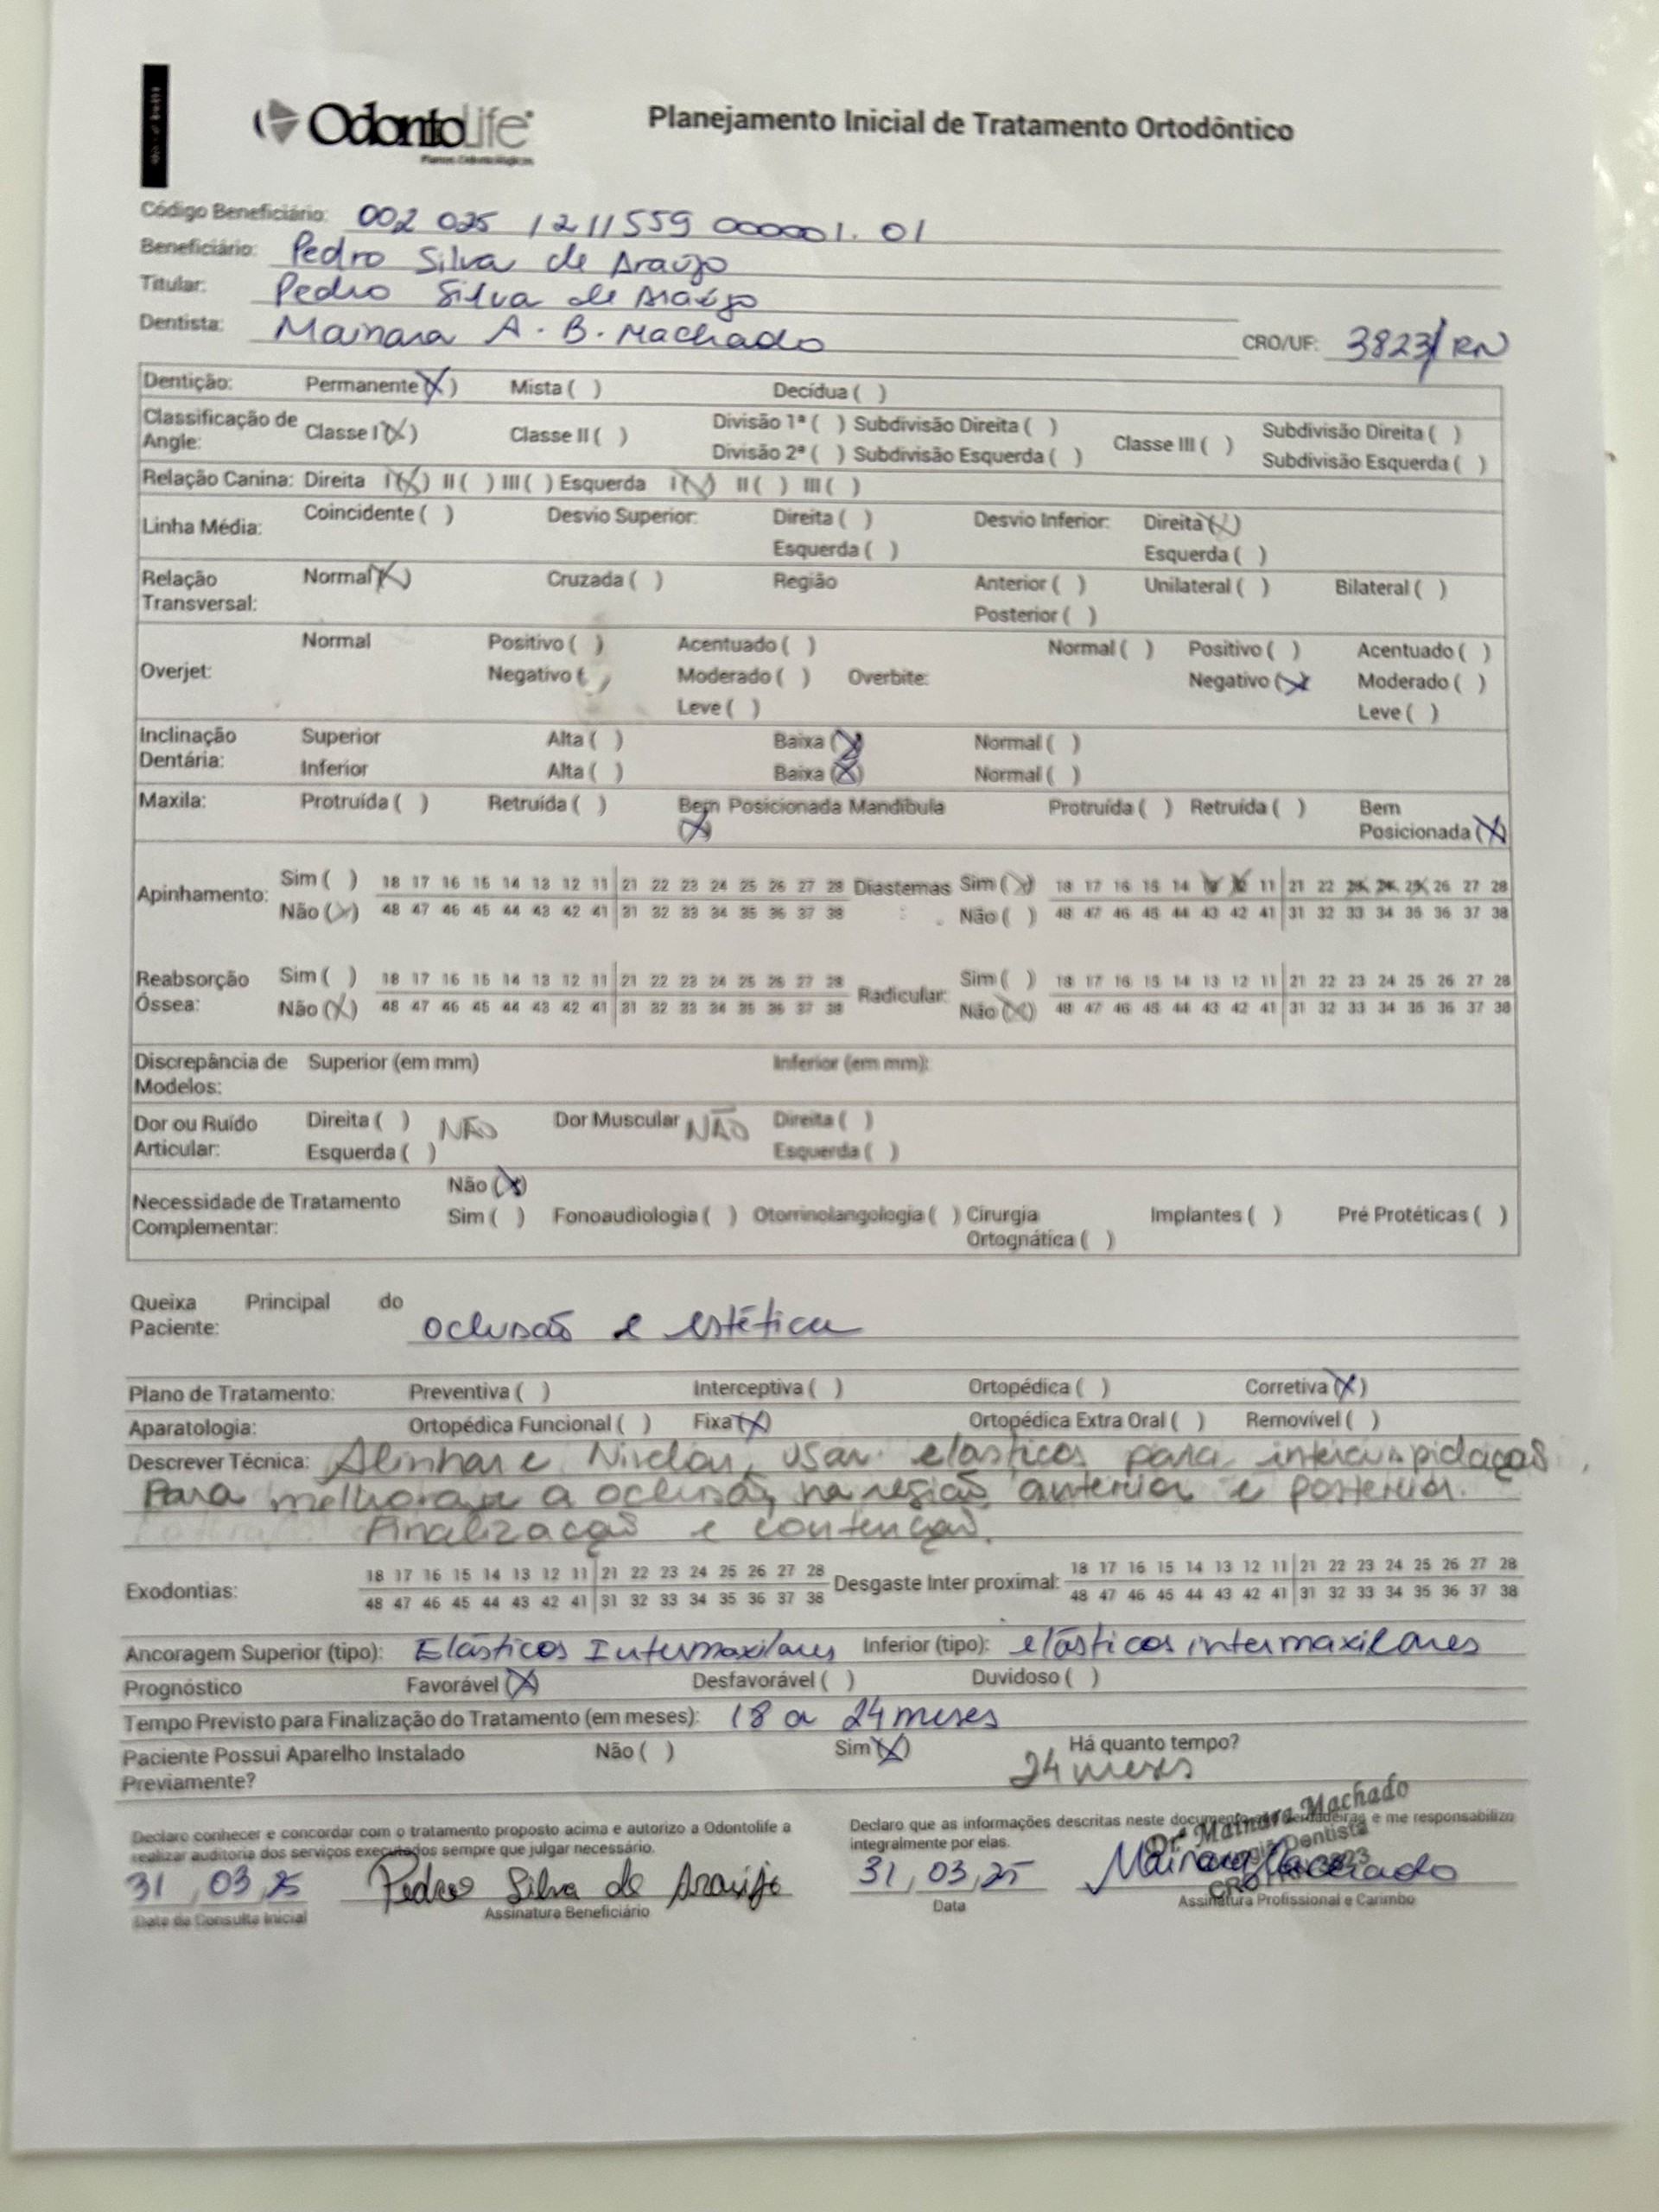 OdontoLife
Planos Odontológicos
Planejamento Inicial de Tratamento Ortodôntico
Código Beneficiário: 002 025 1211559 000001. 01
Beneficiário: Pedro Silva de Araújo
Titular: Pedro Silva de Araújo
Dentista: Mainara A. B. Machado CRO/UF: 3823/RN
Dentição: Permanente (X) Mista ( ) Decídua ( )
Classificação de Angle: Classe I (X) Classe II ( ) Divisão 1ª ( ) Subdivisão Direita ( ) Divisão 2ª ( ) Subdivisão Esquerda ( ) Classe III ( ) Subdivisão Direita ( ) Subdivisão Esquerda ( )
Relação Canina: Direita I (X) II ( ) III ( ) Esquerda I (X) II ( ) III ( )
Linha Média: Coincidente ( ) Desvio Superior: Direita ( ) Esquerda ( ) Desvio Inferior: Direita (X) Esquerda ( )
Relação Transversal: Normal (X) Cruzada ( ) Região Anterior ( ) Posterior ( ) Unilateral ( ) Bilateral ( )
Overjet: Normal Positivo ( ) Negativo ( ) Acentuado ( ) Moderado ( ) Leve ( ) Overbite: Normal ( ) Positivo ( ) Negativo (X) Acentuado ( ) Moderado ( ) Leve ( )
Inclinação Dentária: Superior Alta ( ) Baixa (X) Normal ( )
Inferior Alta ( ) Baixa (X) Normal ( )
Maxila: Protruída ( ) Retruída ( ) Bem Posicionada (X) Mandíbula Protruída ( ) Retruída ( ) Bem Posicionada (X)
Apinhamento: Sim ( ) 18 17 16 15 14 13 12 11 21 22 23 24 25 26 27 28 Diastemas Sim (X) 18 17 16 15 14 13 12 11 21 22 23 24 25 26 27 28
Não (X) 48 47 46 45 44 43 42 41 31 32 33 34 35 36 37 38 Não ( ) 48 47 46 45 44 43 42 41 31 32 33 34 35 36 37 38
Reabsorção Óssea: Sim ( ) 18 17 16 15 14 13 12 11 21 22 23 24 25 26 27 28 Radicular: Sim ( ) 18 17 16 15 14 13 12 11 21 22 23 24 25 26 27 28
Não (X) 48 47 46 45 44 43 42 41 31 32 33 34 35 36 37 38 Não (X) 48 47 46 45 44 43 42 41 31 32 33 34 35 36 37 38
Discrepância de Modelos: Superior (em mm) Inferior (em mm):
Dor ou Ruído Articular: Direita ( ) Esquerda ( ) NÃO Dor Muscular NÃO Direita ( ) Esquerda ( )
Necessidade de Tratamento Complementar: Não (X)
Sim ( ) Fonoaudiologia ( ) Otorrinolangologia ( ) Cirurgia Ortognática ( ) Implantes ( ) Pré Protéticas ( )
Queixa Principal do Paciente: oclusão e estética
Plano de Tratamento: Preventiva ( ) Interceptiva ( ) Ortopédica ( ) Corretiva (X)
Aparatologia: Ortopédica Funcional ( ) Fixa (X) Ortopédica Extra Oral ( ) Removível ( )
Descrever Técnica: Alinhar e Nivelar, usar elásticos para intercuspidação
Para melhorar a oclusão, na região anterior e posterior.
Finalização e contenção.
Exodontias: 18 17 16 15 14 13 12 11 21 22 23 24 25 26 27 28 Desgaste Inter proximal: 18 17 16 15 14 13 12 11 21 22 23 24 25 26 27 28
48 47 46 45 44 43 42 41 31 32 33 34 35 36 37 38 48 47 46 45 44 43 42 41 31 32 33 34 35 36 37 38
Ancoragem Superior (tipo): Elásticos Intermaxilares Inferior (tipo): elásticos intermaxilares
Prognóstico Favorável (X) Desfavorável ( ) Duvidoso ( )
Tempo Previsto para Finalização do Tratamento (em meses): 18 a 24 meses
Paciente Possui Aparelho Instalado Previamente? Não ( ) Sim (X) Há quanto tempo? 24 meses
Declaro conhecer e concordar com o tratamento proposto acima e autorizo a Odontolife a realizar auditoria dos serviços executados sempre que julgar necessário.
Declaro que as informações descritas neste documento são verdadeiras e me responsabilizo integralmente por elas.
Drª Mainara Machado
Cirurgiã Dentista
31, 03, 25 Pedro Silva de Araújo 31, 03, 25 Mainara Machado
Data da Consulta Inicial Assinatura Beneficiário Data Assinatura Profissional e Carimbo